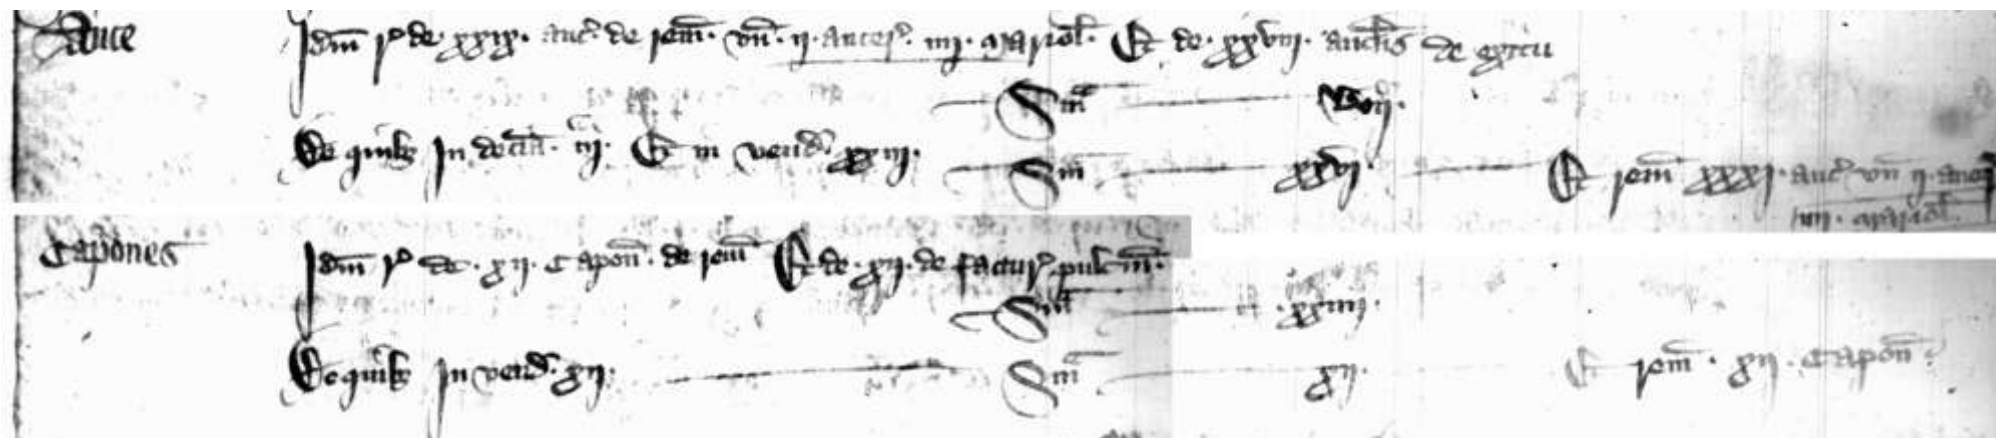 Auce Idm r' de xxix auc' de rem' vn' ij ancer' iiij mariol' Et de xxviij auc'lis de exitu
Sma lvij
De quib3 In decia iij Et in vend' xxiij Sma xxvj Et rem' xxxj auc' vn' ij ancer'
iiij mariol'
Capones Idm r' de xij capon' de rem' Et de xij de factur' pulcin'
Sma xxiiij
De quib3 In vend' xij Sma xij Et rem' xij capon'